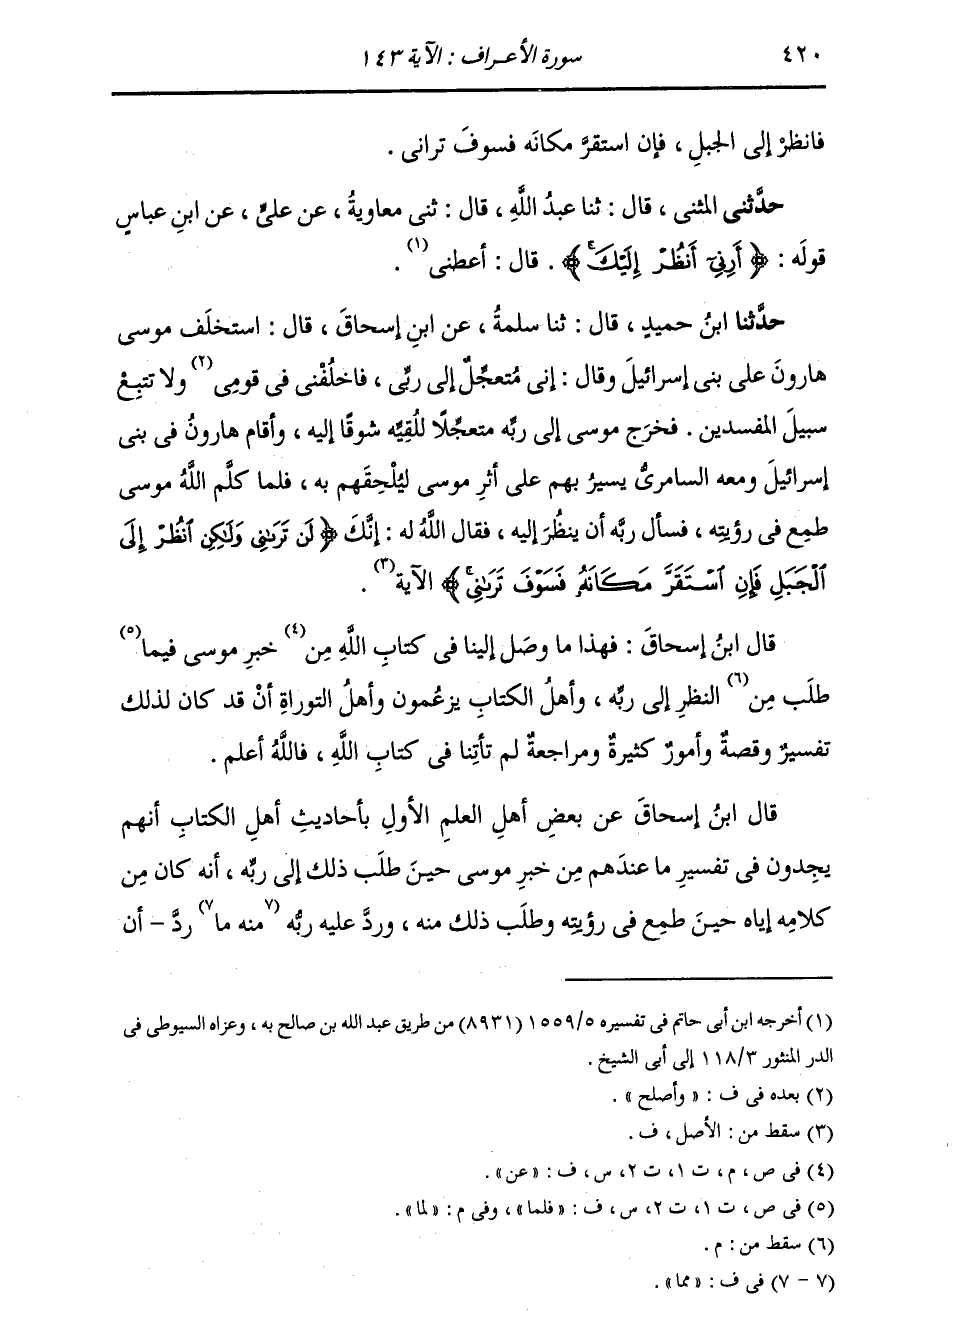 ٤٢٠ سورة الأعراف : الآية ١٤٣
فانظرْ إلى الجبلِ ، فإن استقرَّ مكانَه فسوفَ ترانى .
حدَّثنى المثنى ، قال : ثنا عبدُ اللَّهِ ، قال : ثنى معاويةُ ، عن علىٍّ ، عن ابنِ عباسٍ
قولَه : ﴿ أَرِنِىٓ أَنظُرْ إِلَيْكَۚ ﴾ . قال : أعطنى(١) .
حدَّثنا ابنُ حميدٍ ، قال : ثنا سلمةُ ، عن ابنِ إسحاقَ ، قال : استخلَف موسى
هارونَ على بنى إسرائيلَ وقال : إنى مُتعجِّلٌ إلى ربِّى ، فاخلُفْنى فى قومِى(٢) ولا تتبِعْ
سبيلَ المفسدين . فخرَج موسى إلى ربِّه متعجِّلًا للُقِيِّه شوقًا إليه ، وأقام هارونُ فى بنى
إسرائيلَ ومعه السامرىُّ يسيرُ بهم على أثرِ موسى ليُلْحِقَهم به ، فلما كلَّم اللَّهُ موسى
طمِع فى رؤيتِه ، فسأل ربَّه أن ينظُرَ إليه ، فقال اللَّهُ له : إنَّكَ ﴿ لَن تَرَىٰنِى وَلَٰكِنِ ٱنظُرْ إِلَى
ٱلْجَبَلِ فَإِنِ ٱسْتَقَرَّ مَكَانَهُۥ فَسَوْفَ تَرَىٰنِىۚ ﴾ الآية(٣) .
قال ابنُ إسحاقَ : فهذا ما وصَل إلينا فى كتابِ اللَّهِ مِن(٤) خبرِ موسى فيما(٥)
طلَب مِن(٦) النظرِ إلى ربِّه ، وأهلُ الكتابِ يزعُمون وأهلُ التوراةِ أنْ قد كان لذلك
تفسيرٌ وقصةٌ وأمورٌ كثيرةٌ ومراجعةٌ لم تأتِنا فى كتابِ اللَّهِ ، فاللَّهُ أعلم .
قال ابنُ إسحاقَ عن بعضِ أهلِ العلمِ الأولِ بأحاديثِ أهلِ الكتابِ أنهم
يجِدون فى تفسيرِ ما عندَهم مِن خبرِ موسى حينَ طلَب ذلك إلى ربِّه ، أنه كان مِن
كلامِه إياه حينَ طمِع فى رؤيتِه وطلَب ذلك منه ، وردَّ عليه ربُّه (٧منه ما٧) ردَّ – أن
(١) أخرجه ابن أبى حاتم فى تفسيره ١٥٥٩/٥ (٨٩٣١) من طريق عبد الله بن صالح به ، وعزاه السيوطى فى
الدر المنثور ١١٨/٣ إلى أبى الشيخ .
(٢) بعده فى ف : « وأصلح » .
(٣) سقط من : الأصل ، ف .
(٤) فى ص ، م ، ت ١، ت ٢، س ، ف : «عن» .
(٥) فى ص ، ت ١، ت ٢، س ، ف : «فلما» ، وفى م : «لما» .
(٦) سقط من : م .
(٧ – ٧) فى ف : «مما» .